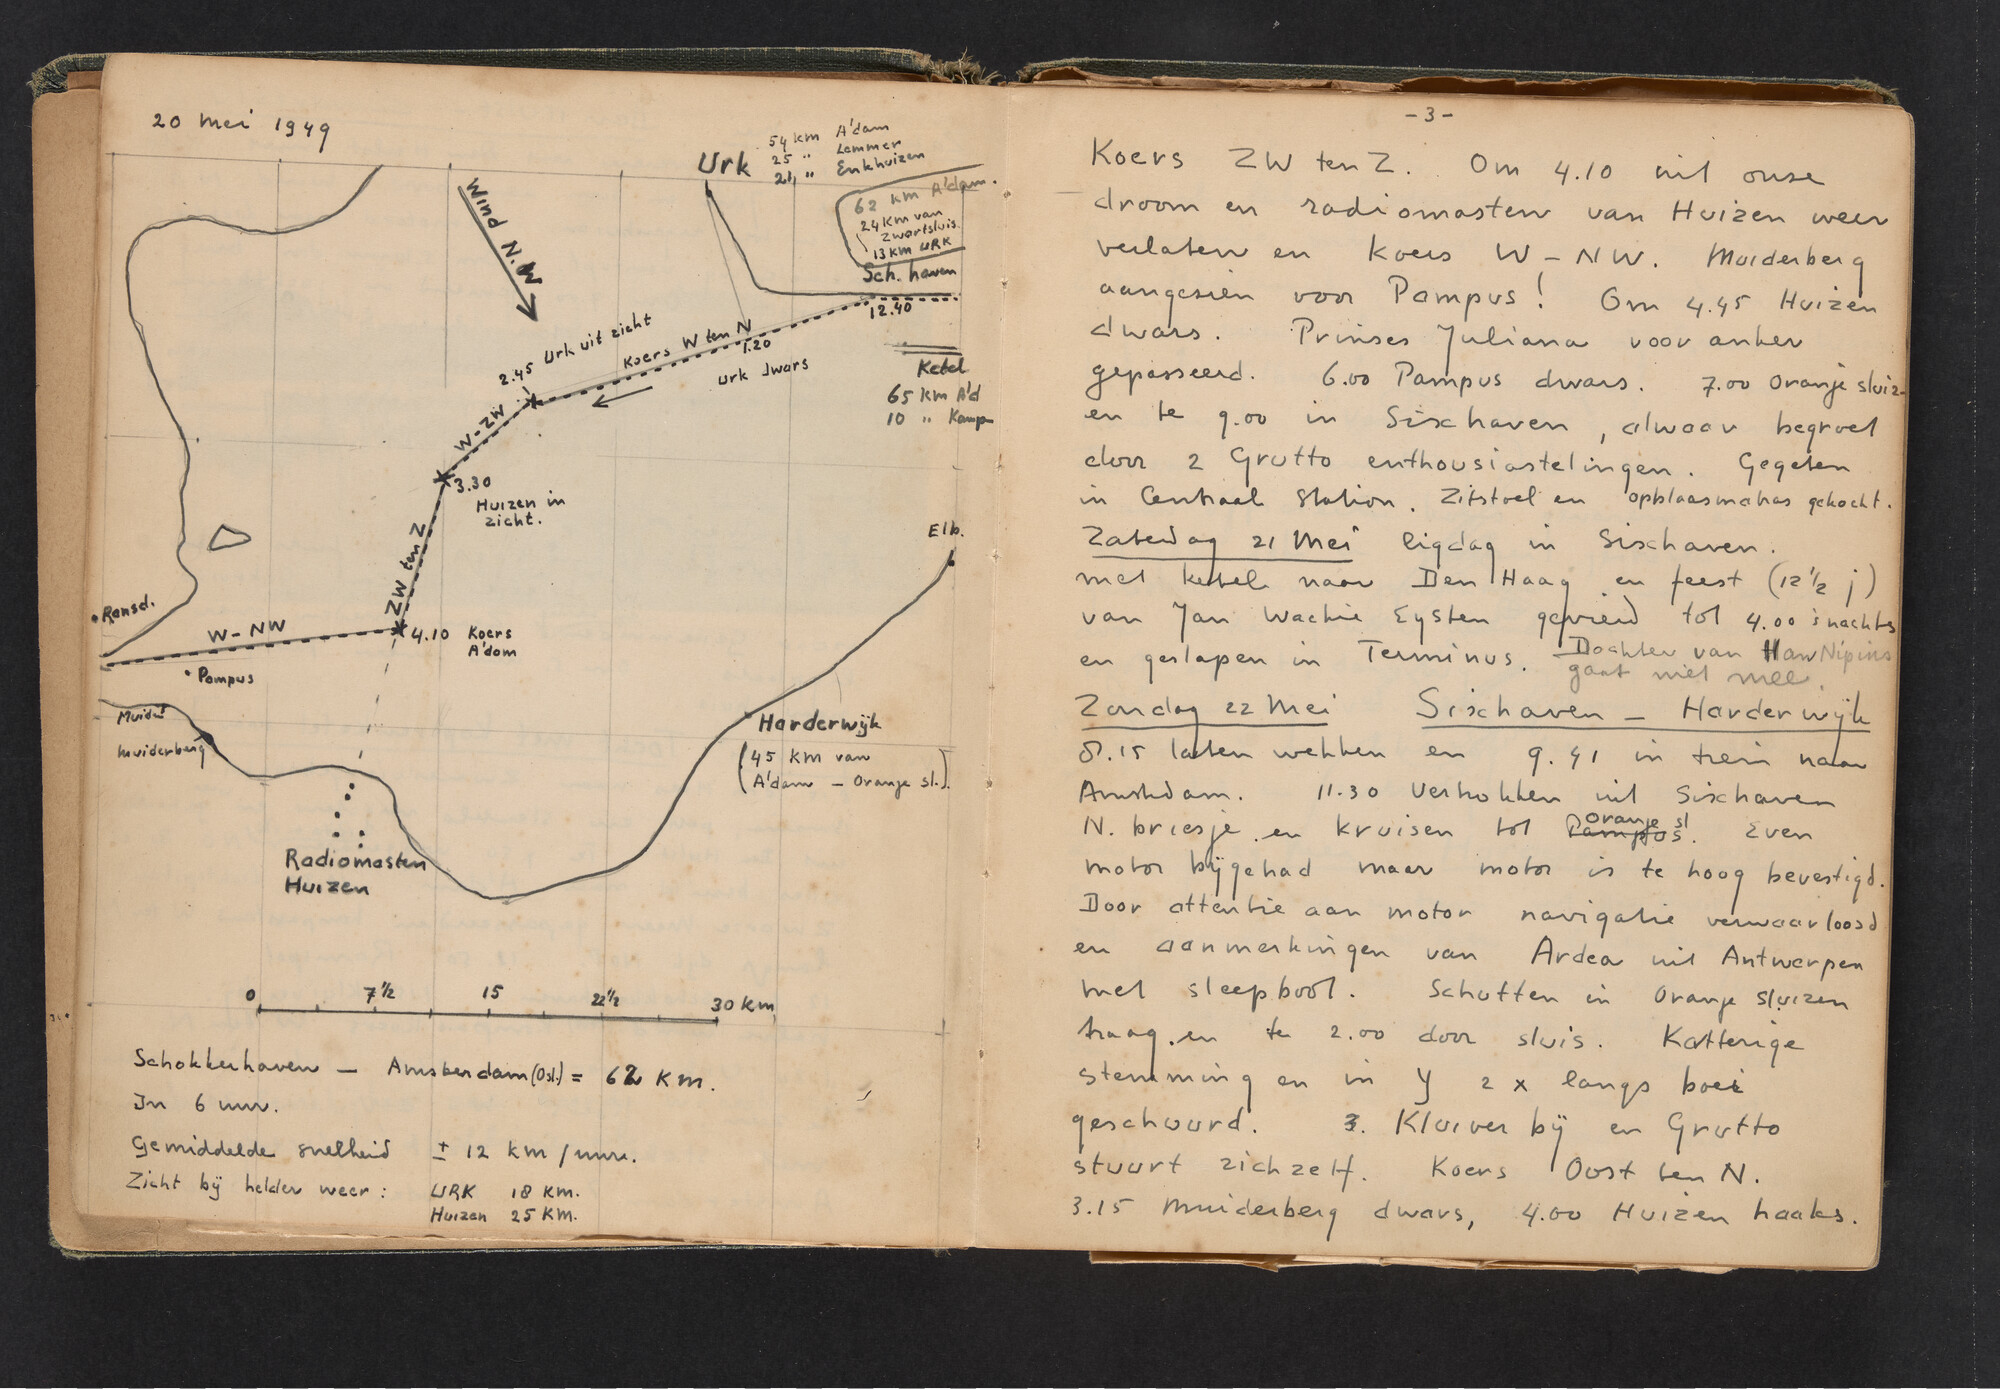 20 mei 1949
Urk
54 km A'dam
25 " Lemmer
21 " Enkhuizen
62 km A'dam.
24 km van
Zwartsluis
13 km URK
Sch. haven
12.40
Wind N.W
2.45 Urk uit zicht
Koers W ten N
1.20
Urk dwars
Ketel
65 km A'd
10 " Kamp
W-ZW
3.30
Huizen in
zicht.
ZW ten Z
Elb.
Ransd.
W-NW
4.10 Koers
A'dam
Pampus
Muiden
Muiderberg
Harderwijk
(45 km van
A'dam - Oranje sl.)
Radiomasten
Huizen
0 7 1/2 15 22 1/2 30 km
Schokkerhaven - Amsterdam (Osl.) = 62 km.
In 6 uur.
Gemiddelde snelheid ± 12 km/uur.
Zicht bij helder weer: URK 18 km.
Huizen 25 km.
- 3 -
Koers ZW ten Z. Om 4.10 uit onze
droom en radiomasten van Huizen weer
verlaten en Koers W - NW. Muiderberg
aangezien voor Pampus! Om 4.45 Huizen
dwars. Prinses Juliana voor anker
gepasseerd. 6.00 Pampus dwars. 7.00 Oranje sluiz-
en te 9.00 in Sixhaven, alwaar begroet
door 2 Grutto enthousiastelingen. Gegeten
in Centraal Station. Zitstoel en opblaasmatras gekocht.
Zaterdag 21 Mei ligdag in Sixhaven.
met ketel naar Den Haag en feest (12 1/2 j)
van Jan Wackie Eysten gevierd tot 4.00 's nachts
en geslapen in Terminus. Dochter van Han Nipius
gaat niet mee.
Zondag 22 Mei Sixhaven - Harderwijk
8.15 laten wekken en 9.41 in trein naar
Amsterdam. 11.30 Vertrokken uit Sixhaven
N. briesje en kruisen tot Pampus Oranje sl. Even
motor bijgehad maar motor is te hoog bevestigd.
Door attentie aan motor navigatie verwaarloosd
en aanmerkingen van Ardea uit Antwerpen
met sleepboot. Schutten in Oranje sluizen
traag en te 2.00 door sluis. Katterige
stemming en in Y 2 x langs boei
geschuurd. 3. Kluiver bij en Grutto
stuurt zichzelf. Koers Oost ten N.
3.15 Muiderberg dwars, 4.00 Huizen haaks.